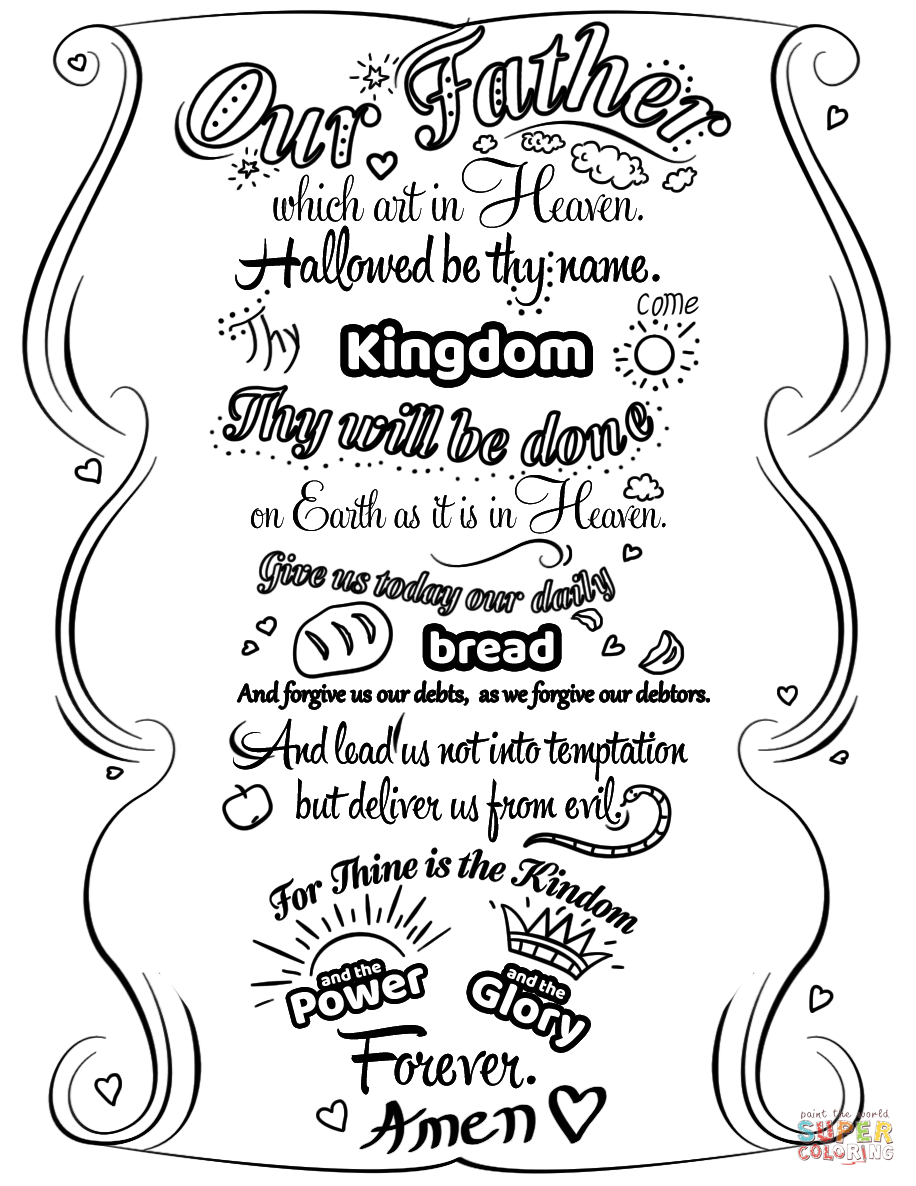 Our Father
which art in Heaven.
Hallowed be thy name.
Thy Kingdom come
Thy will be done
on Earth as it is in Heaven.
Give us today our daily
bread
And forgive us our debts, as we forgive our debtors.
And lead us not into temptation
but deliver us from evil.
For Thine is the Kindom
and the Power
and the Glory
Forever.
Amen
paint the world
SUPER
COLORING